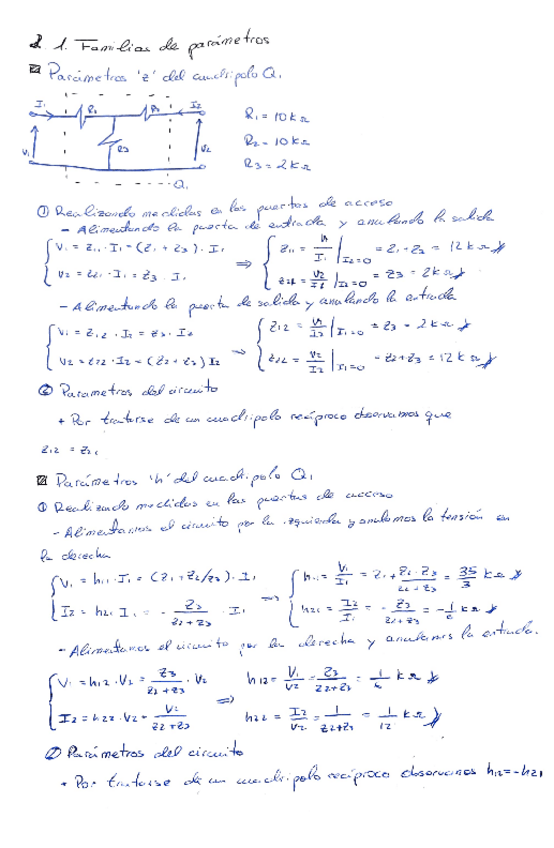 2. 1. Familias de parámetros
Parámetros 'z' del cuadripolo Q1
I1 R1 R2 I2
V1 R3 V2
Q1
R1 = 10 kΩ
R2 = 10 kΩ
R3 = 2 kΩ
① Realizando medidas en las puertas de acceso
- Alimentando la puerta de entrada y anulando la salida
V1 = Z11 · I1 = (Z1 + Z3) · I1 ⇒ Z11 = V1/I1 | I2=0 = Z1+Z3 = 12 kΩ
V2 = Z21 · I1 = Z3 · I1 Z21 = V2/I1 | I2=0 = Z3 = 2 kΩ
- Alimentando la puerta de salida y anulando la entrada
V1 = Z12 · I2 = Z3 · I2 → Z12 = V1/I2 | I1=0 = Z3 = 2 kΩ
V2 = Z22 · I2 = (Z2 + Z3) I2 Z22 = V2/I2 | I1=0 = Z2+Z3 = 12 kΩ
② Parametros del circuito
+ Por tratarse de un cuadripolo recíproco observamos que
Z12 = Z21
Parámetros 'h' del cuadripolo Q1
① Realizando medidas en las puertas de acceso
- Alimentamos el circuito por la izquierda y anulamos la tensión en
la derecha
V1 = h11 · I1 = (Z1 + Z2//Z3) · I1 ⇒ h11 = V1/I1 = Z1 + Z2·Z3/(Z2+Z3) = 35/3 kΩ
I2 = h21 I1 = - Z3/(Z2+Z3) · I1 h21 = I2/I1 = - Z3/(Z2+Z3) = -1/6 kΩ
- Alimentamos el circuito por la derecha y anulamos la entrada.
V1 = h12 · V2 = Z3/(Z2+Z3) · V2 ⇒ h12 = V1/V2 = Z3/(Z2+Z3) = 1/6 kΩ
I2 = h22 · V2 = V2/(Z2+Z3) h22 = I2/V2 = 1/(Z2+Z3) = 1/12 kΩ
② Parámetros del circuito
+ Por tratarse de un cuadripolo recíproco observamos h12=-h21